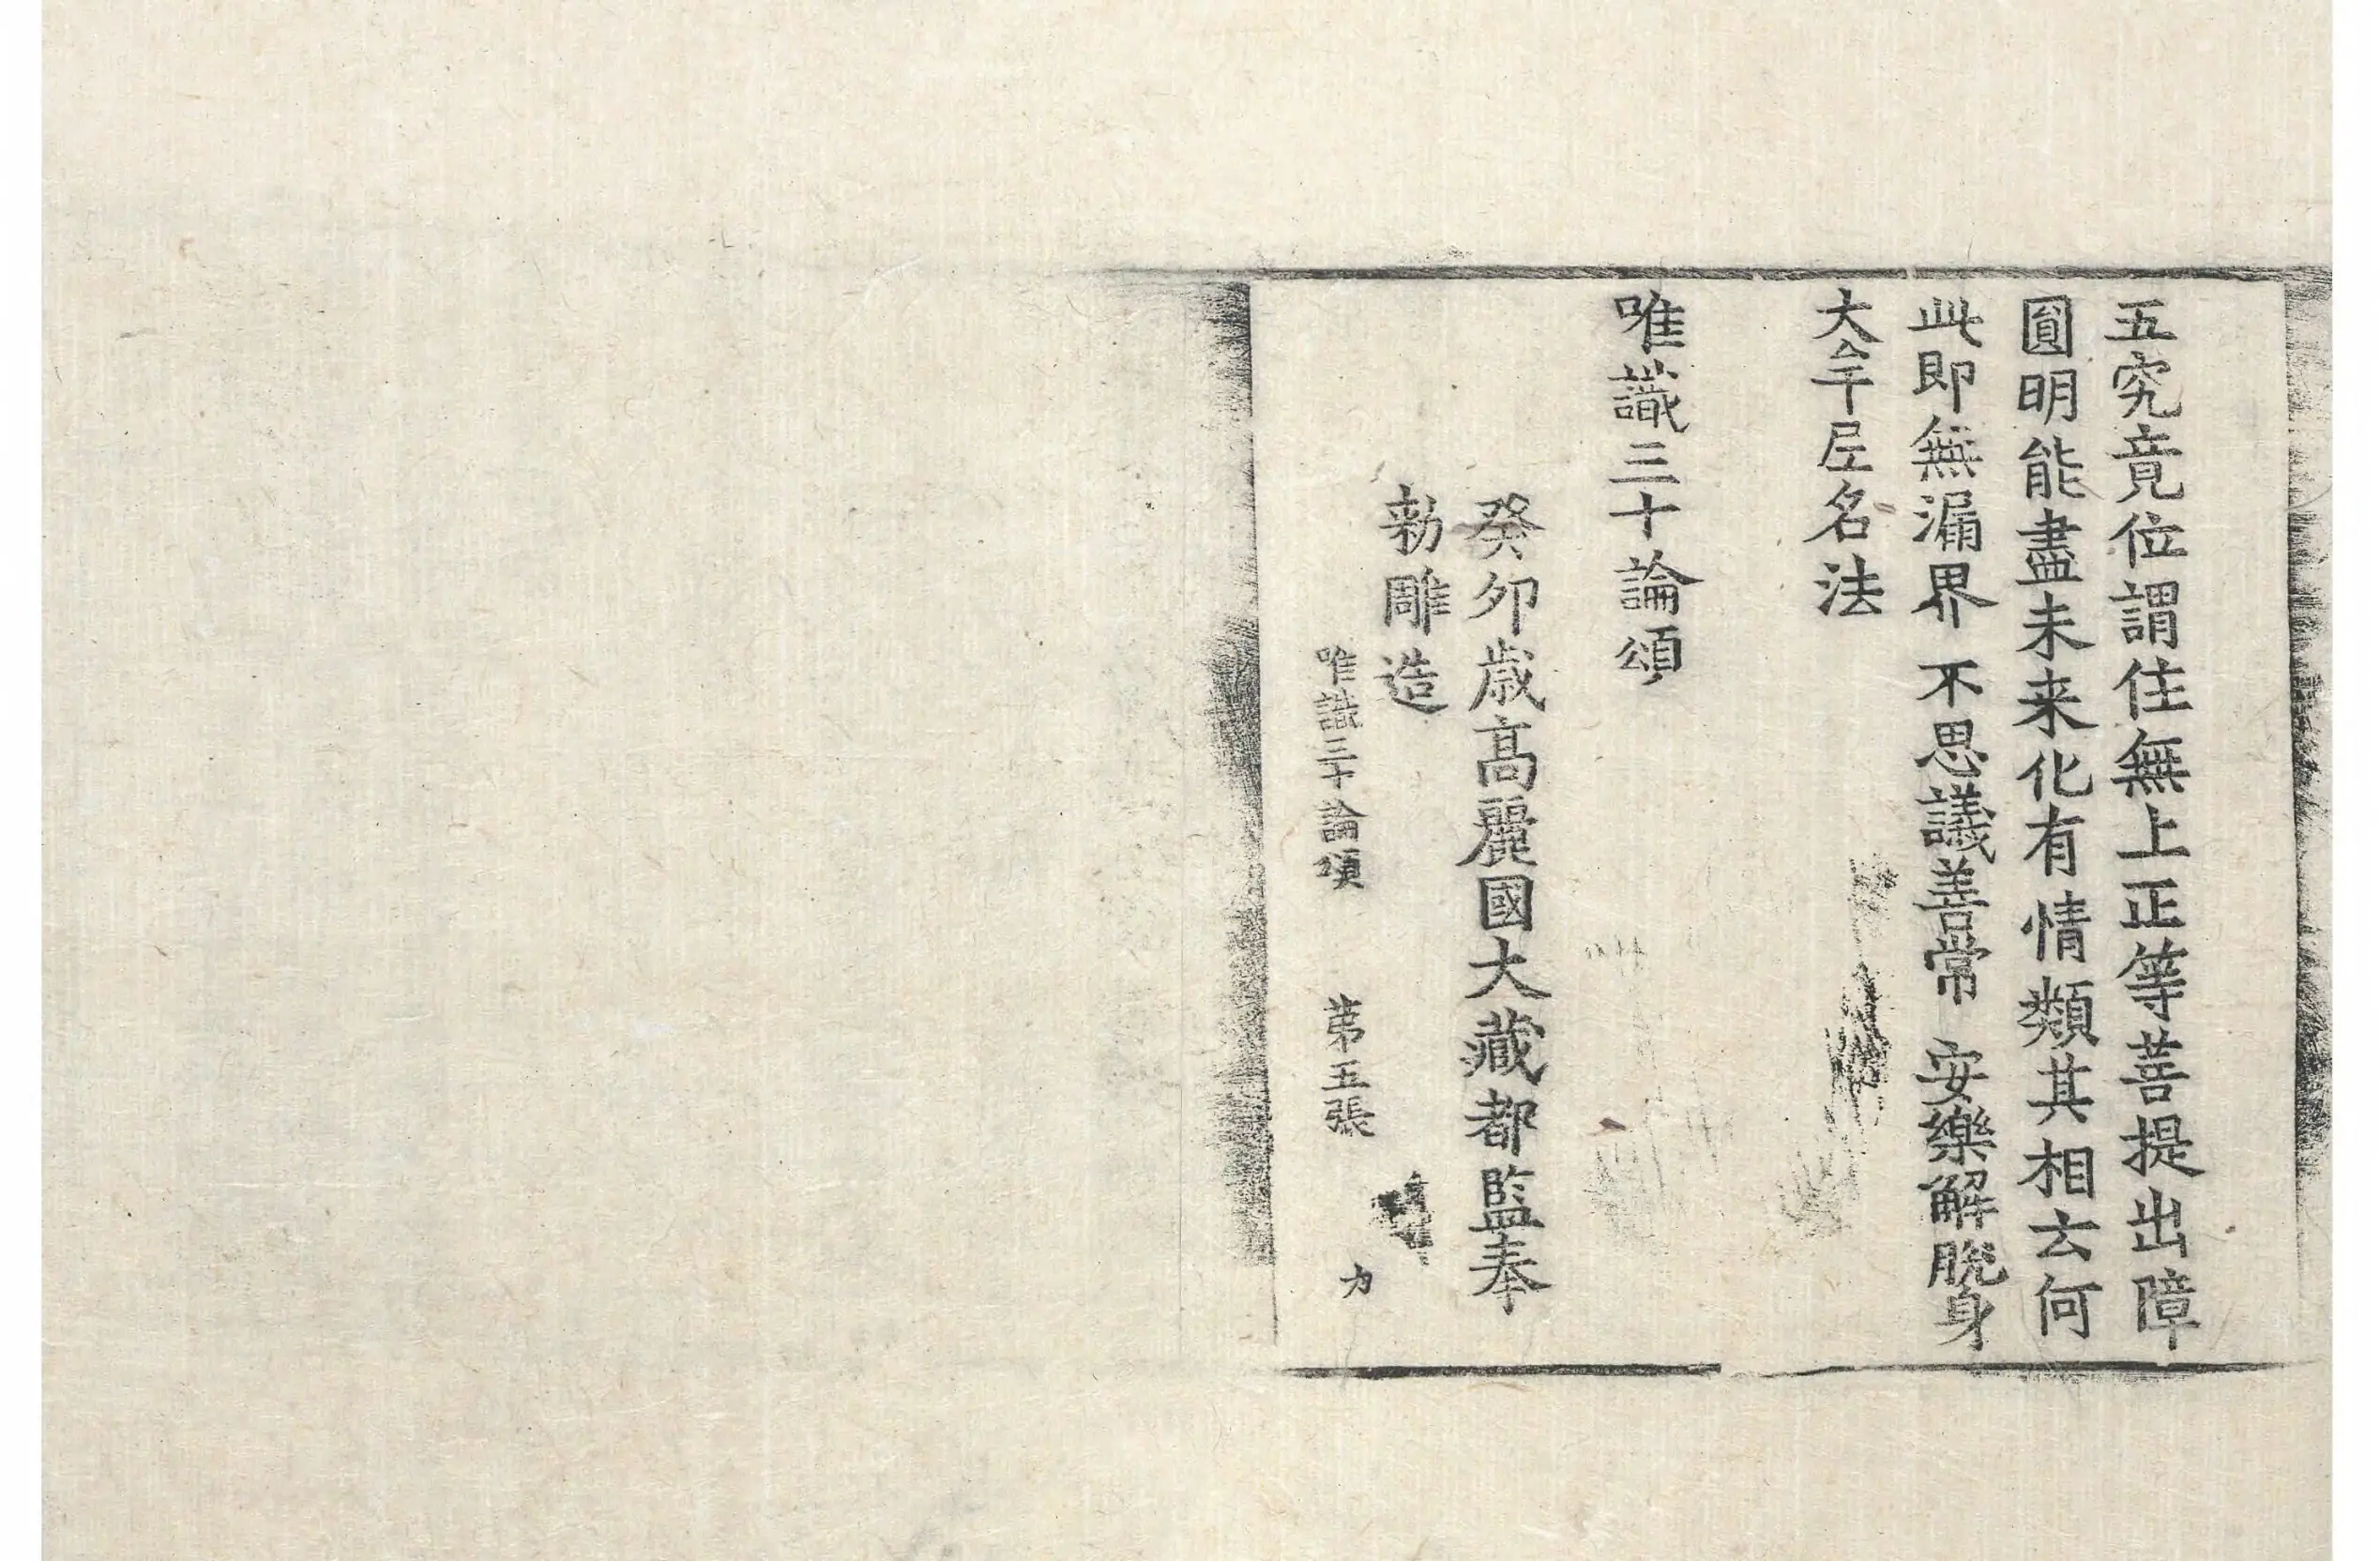 五究竟位謂住無上正等菩提出障
圓明能盡未来化有情類其相云何
此即無漏界 不思議善常 安樂解脫身
大牟尼名法
唯識三十論頌
癸卯歳高麗國大藏都監奉
勅雕造
唯識三十論頌 第五張 力